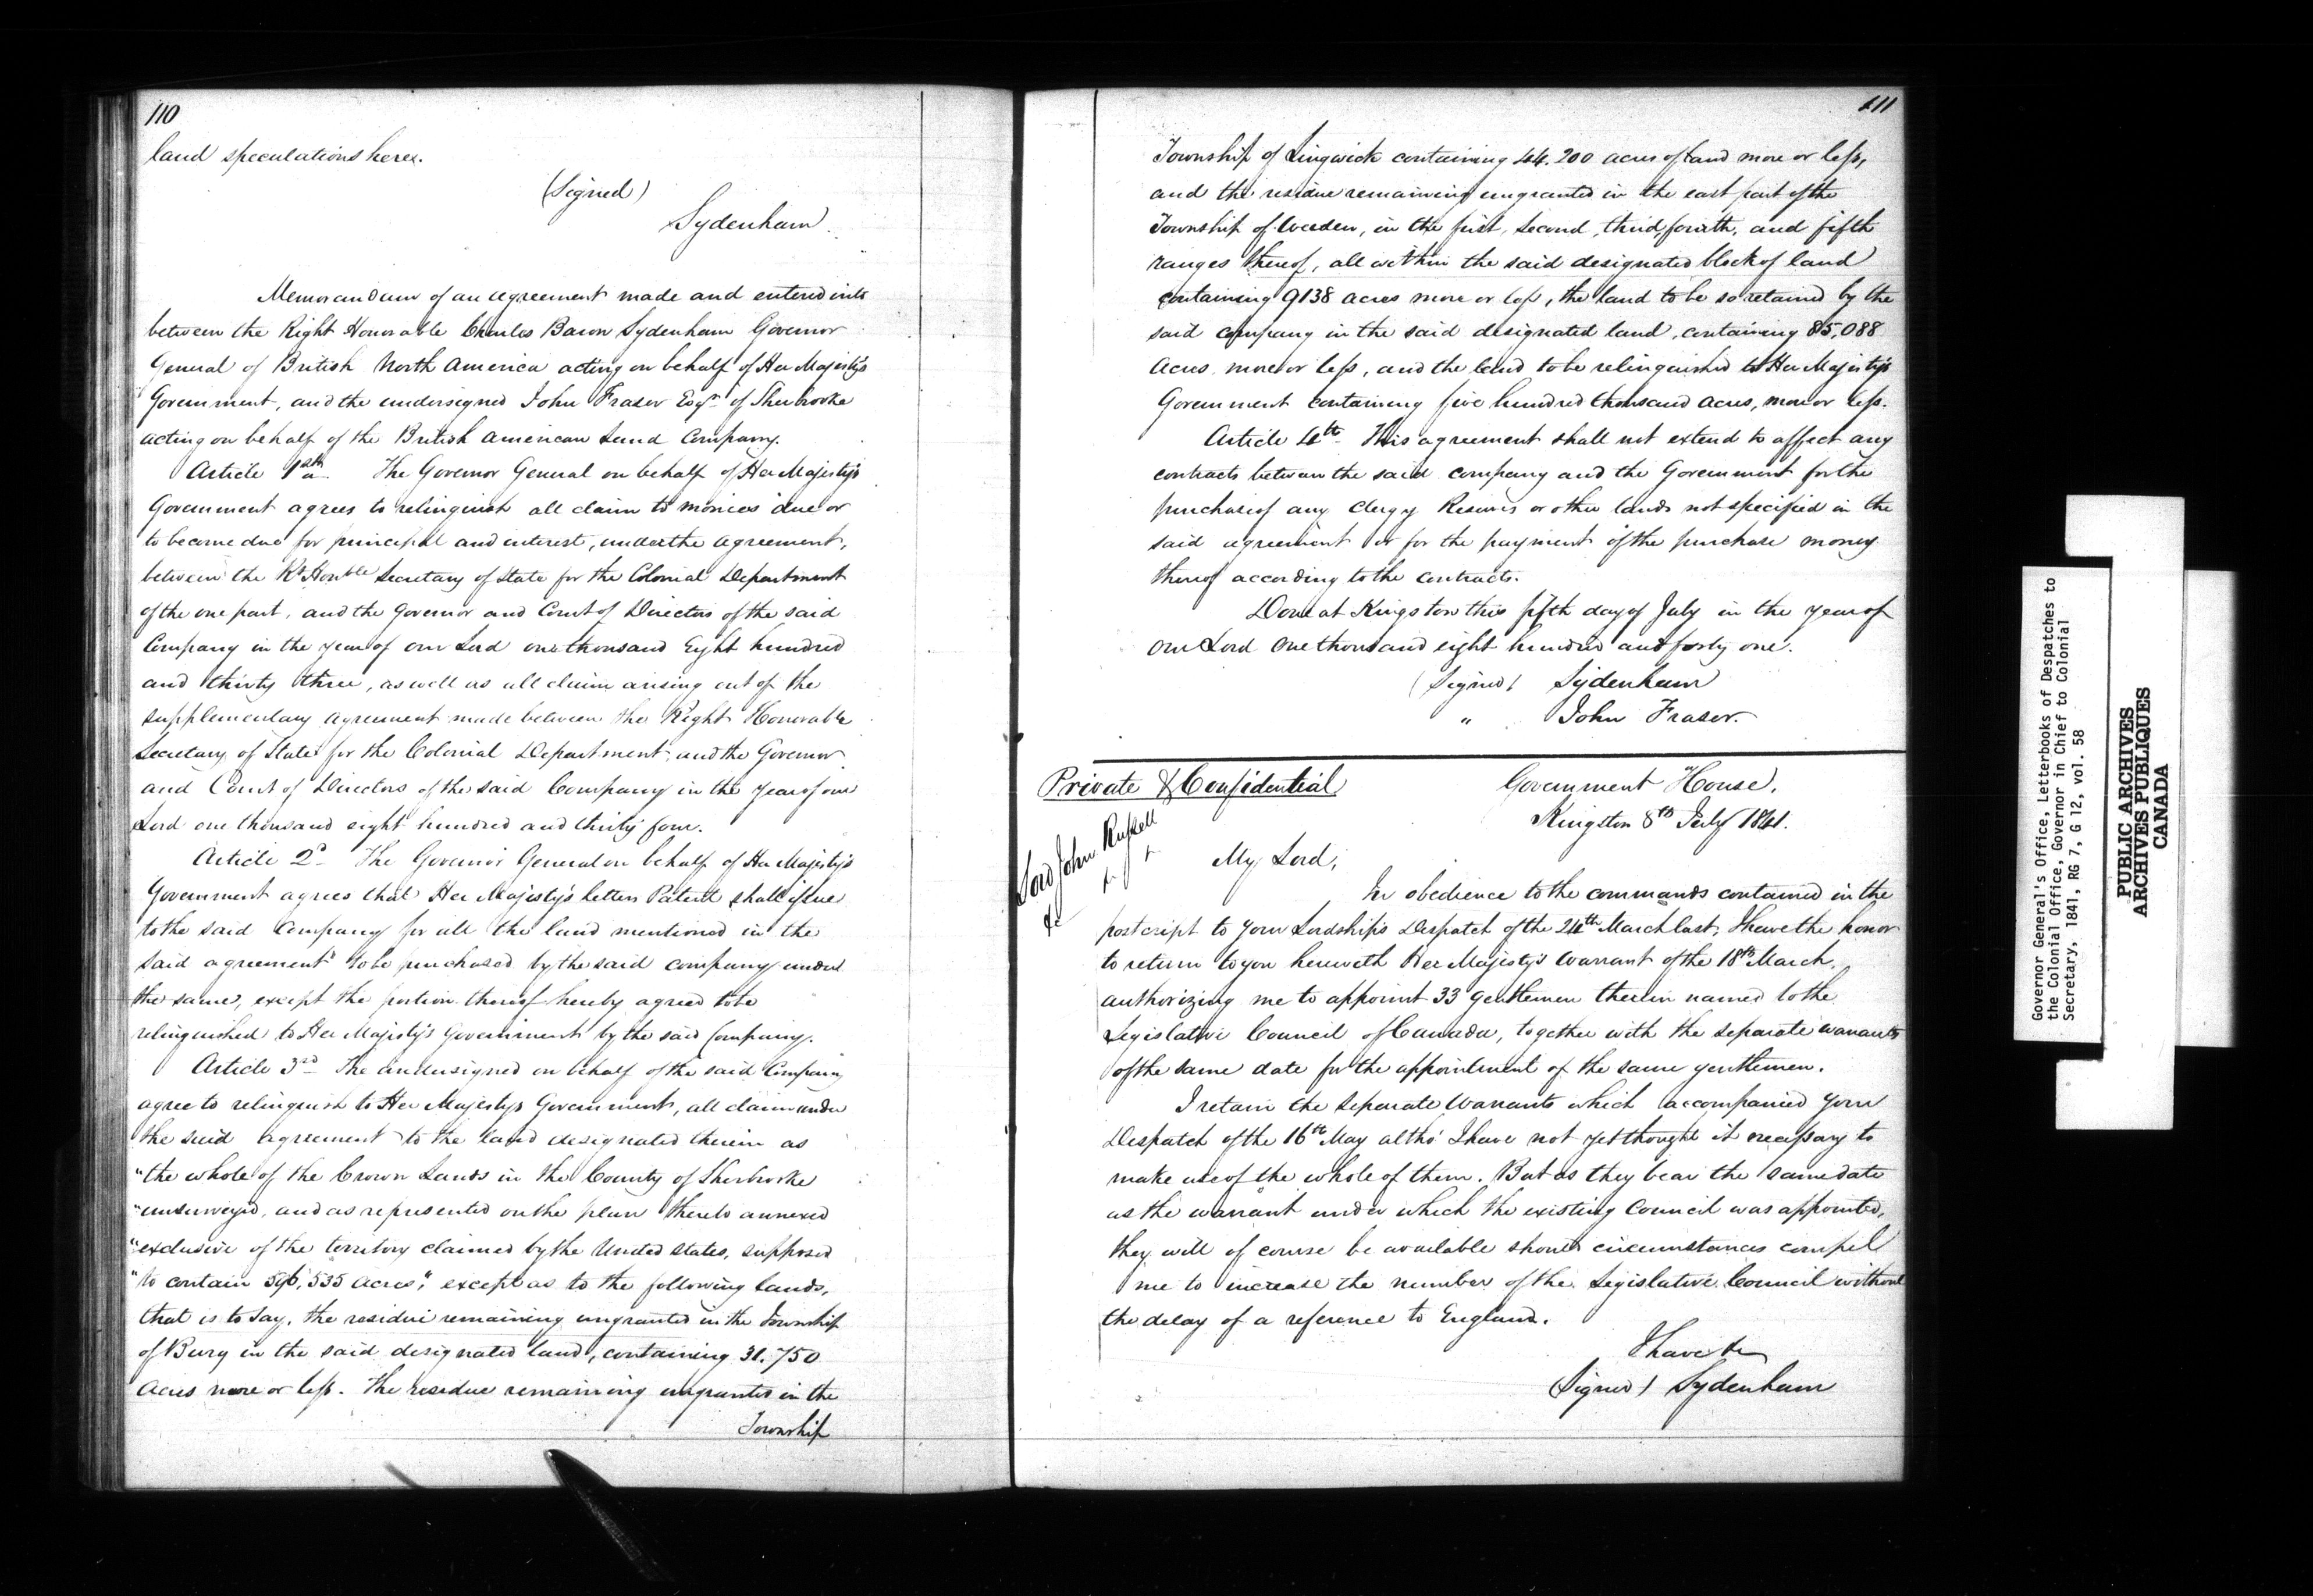 110
land speculations here.
(Signed)
Sydenham.
Memorandum of an agreement made and entered into
between the Right Honorable Charles Baron Sydenham Governor
General of British North America acting on behalf of Her Majesty's
Government, and the undersigned John Fraser Esqr. of Sherbrooke
acting on behalf of the British American Land Company.
Article 1st. The Governor General on behalf of Her Majesty's
Government agrees to relinquish all claim to monies due or
to become due for principal and interest, under the agreement,
between the Rt. Honble Secretary of State for the Colonial Department
of the one part, and the Governor and Court of Directors of the said
Company in the year of our Lord one thousand Eight hundred
and thirty three, as well as all claim arising out of the
supplementary agreement made between the Right Honorable
Secretary of State for the Colonial Department, and the Governor
and Court of Directors of the said Company in the year of our
Lord one thousand eight hundred and thirty four.
Article 2d. The Governor General on behalf of Her Majesty's
Government agrees that Her Majesty's letters Patent shall issue
to the said Company for all the land mentioned in the
said agreement to be purchased by the said company under
the same, except the portion thereof hereby agreed to be
relinquished to Her Majesty's Government by the said Company.
Article 3rd The undersigned on behalf of the said Company
agree to relinquish to Her Majesty's Government, all claim under
the said agreement to the land designated therein as
"the whole of the Crown Lands in the County of Sherbrooke
"unsurveyed, and as represented on the plan thereto annexed
"exclusive of the territory claimed by the United States, supposed
"to contain 596,535 acres," except as to the following lands,
that is to say, the residue remaining ungranted in the Township
of Bury in the said designated land, containing 31.750
Acres more or less. the residue remaining ungranted in the
Township
111
Township of Lingwick containing 44.200 acres of land more or less,
and the residue remaining ungranted in the east part of the
Township of Weedon, in the first, second, third, fourth, and fifth
ranges thereof, all within the said designated block of land
containing 9138 acres more or less, the land to be so retained by the
said company in the said designated land, containing 85,088
Acres more or less, and the land to be relinquished to Her Majesty's
Government containing five hundred thousand acres, more or less.
Article 4th. This agreement shall not extend to affect any
contracts between the said company and the Government for the
purchase of any Clergy Reserves or other lands not specified in the
said agreement or for the payment of the purchase money
thereof according to the contracts.
Done at Kingston this fifth day of July in the year of
our Lord one thousand eight hundred and forty one.
(Signed) Sydenham
" John Fraser.
Private & Confidential
Government House,
Kingston 8th July 1841.
Lord John Russell
&c
My Lord,
In obedience to the commands contained in the
postcript to your Lordship's Despatch of the 24th March last, I have the honor
to return to you herewith Her Majesty's Warrant of the 18th March,
authorizing me to appoint 33 gentlemen therein named to the
Legislative Council of Canada, together with the separate warrants
of the same date for the appointment of the same gentlemen.
I retain the separate Warrants which accompanied your
Despatch of the 16th May altho' I have not yet thought it necessary to
make use of the whole of them. But as they bear the same date
as the warrant under which the existing Council was appointed,
they will of course be available should circumstances compel
me to increase the number of the Legislative Council without
the delay of a reference to England.
I have &c
(Signed) Sydenham
Governor General's Office, Letterbooks of Despatches to
the Colonial Office, Governor in Chief to Colonial
Secretary, 1841, RG 7, G 12, vol. 58
PUBLIC ARCHIVES
ARCHIVES PUBLIQUES
CANADA